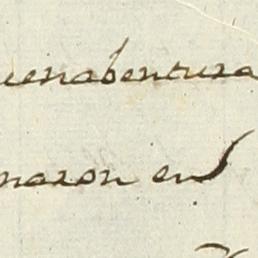 uenabentura
maron en